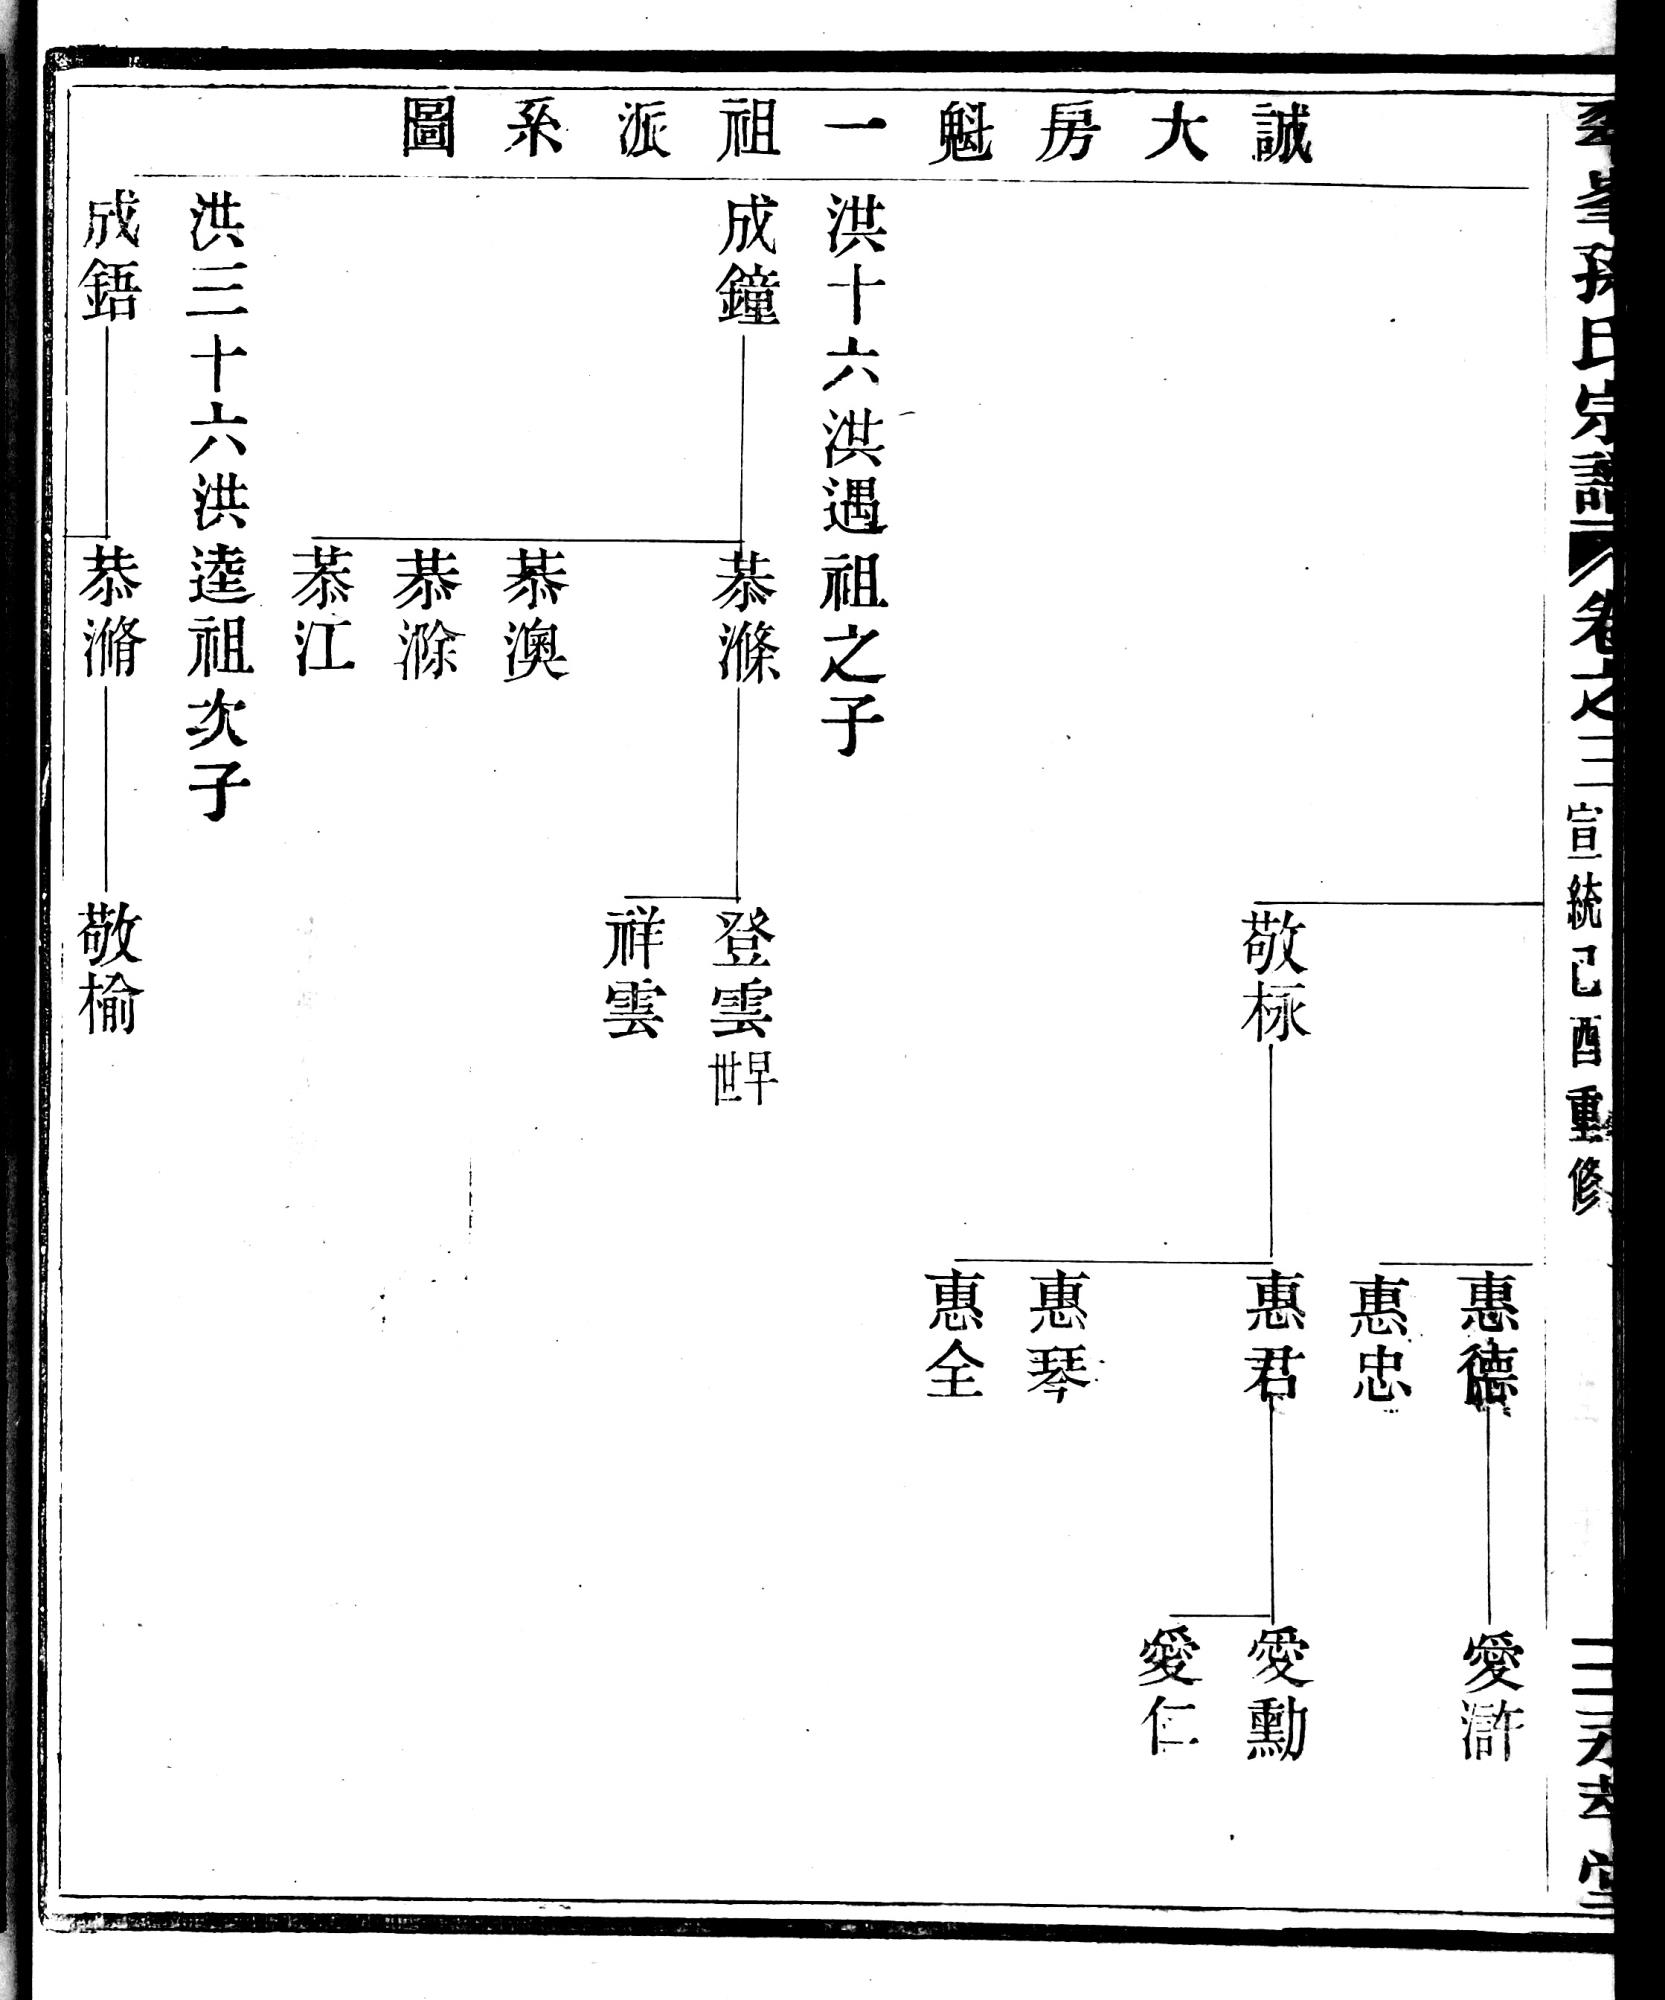 誠大房魁一祖派系圖
峯孫氏宗譜
卷之三
宣統己酉重修
惠德
愛滸
惠忠
敬栐
惠君
愛勳
愛仁
惠琴
惠全
洪十六洪遇祖之子
成鐘
恭滌
登雲早世
祥雲
恭澳
恭滁
恭江
洪三十六洪逵祖次子
成鋙
恭潃
敬榆